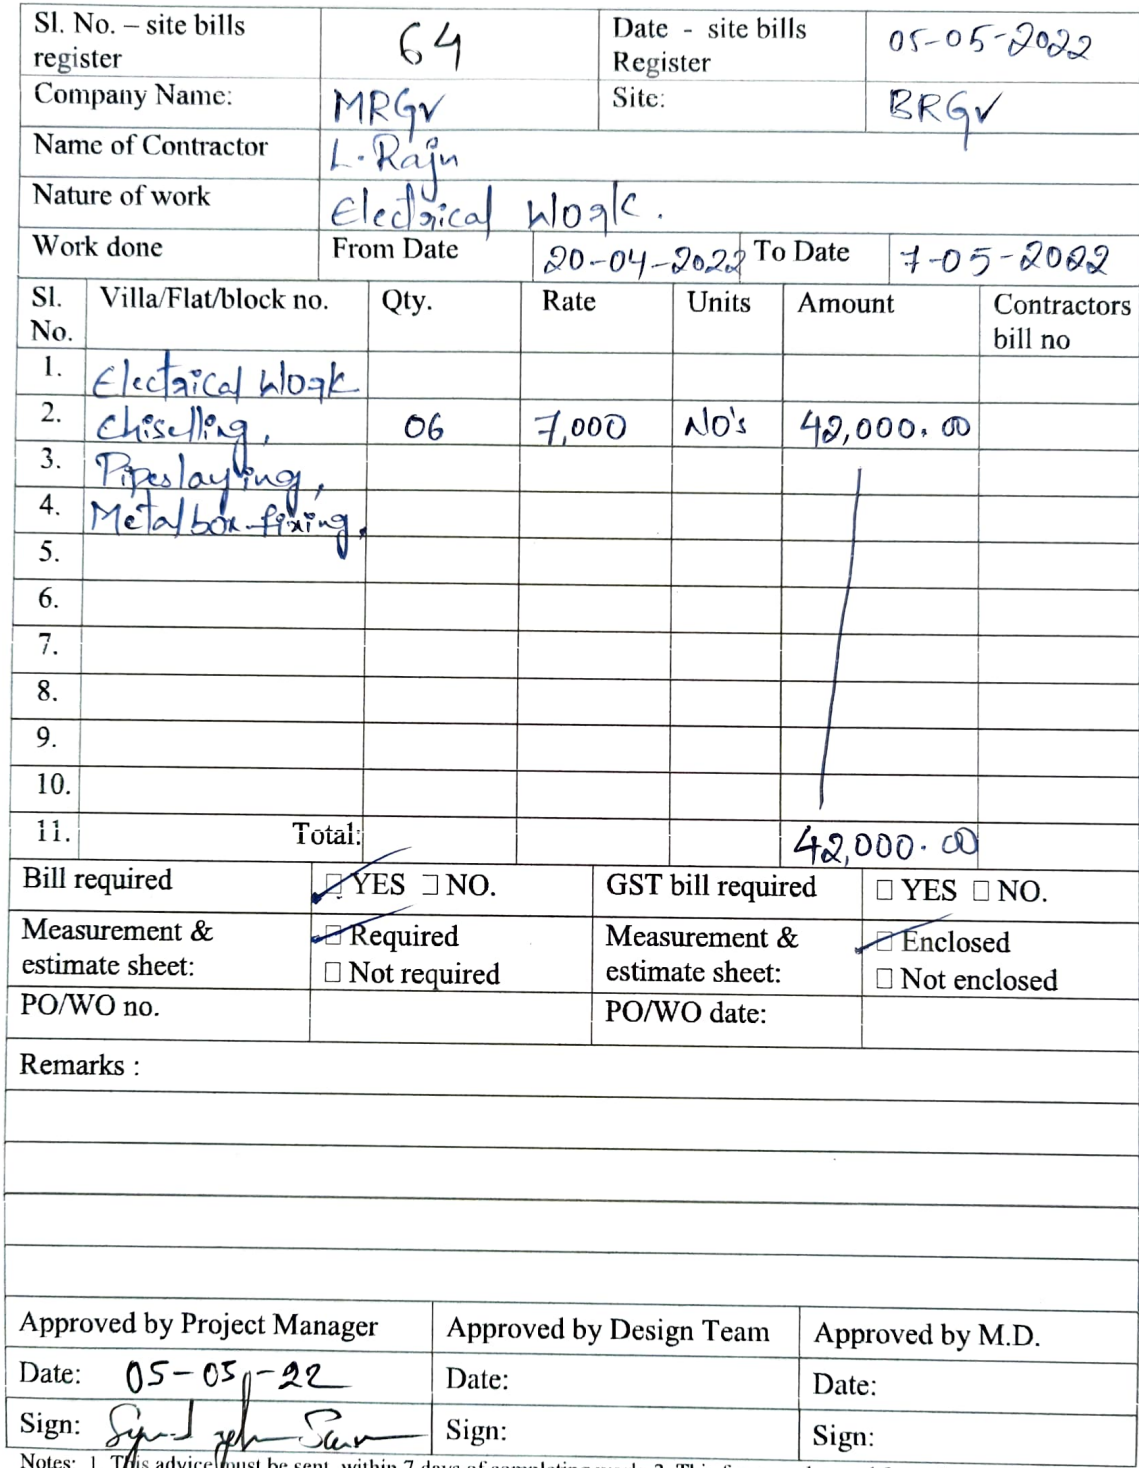 Sl. No. – site bills register 64 Date - site bills Register 05-05-2022
Company Name: MRGV Site: BRGV
Name of Contractor L. Raju
Nature of work Electrical Work.
Work done From Date 20-04-2022 To Date 7-05-2022
Sl. No. Villa/Flat/block no. Qty. Rate Units Amount Contractors bill no
1. Electrical Work
2. Chiselling, 06 7,000 NO's 42,000.00
3. Pipeslaying,
4. Metal box fixing,
5.
6.
7.
8.
9.
10.
11. Total: 42,000.00
Bill required ☐ YES ☐ NO. GST bill required ☐ YES ☐ NO.
Measurement & estimate sheet: ☐ Required ☐ Not required Measurement & estimate sheet: ☐ Enclosed ☐ Not enclosed
PO/WO no. PO/WO date:
Remarks :
Approved by Project Manager Approved by Design Team Approved by M.D.
Date: 05-05-22 Date: Date:
Sign: Sign: Sign:
Notes: 1. This advice must be sent within 7 days of completing work. 2. This